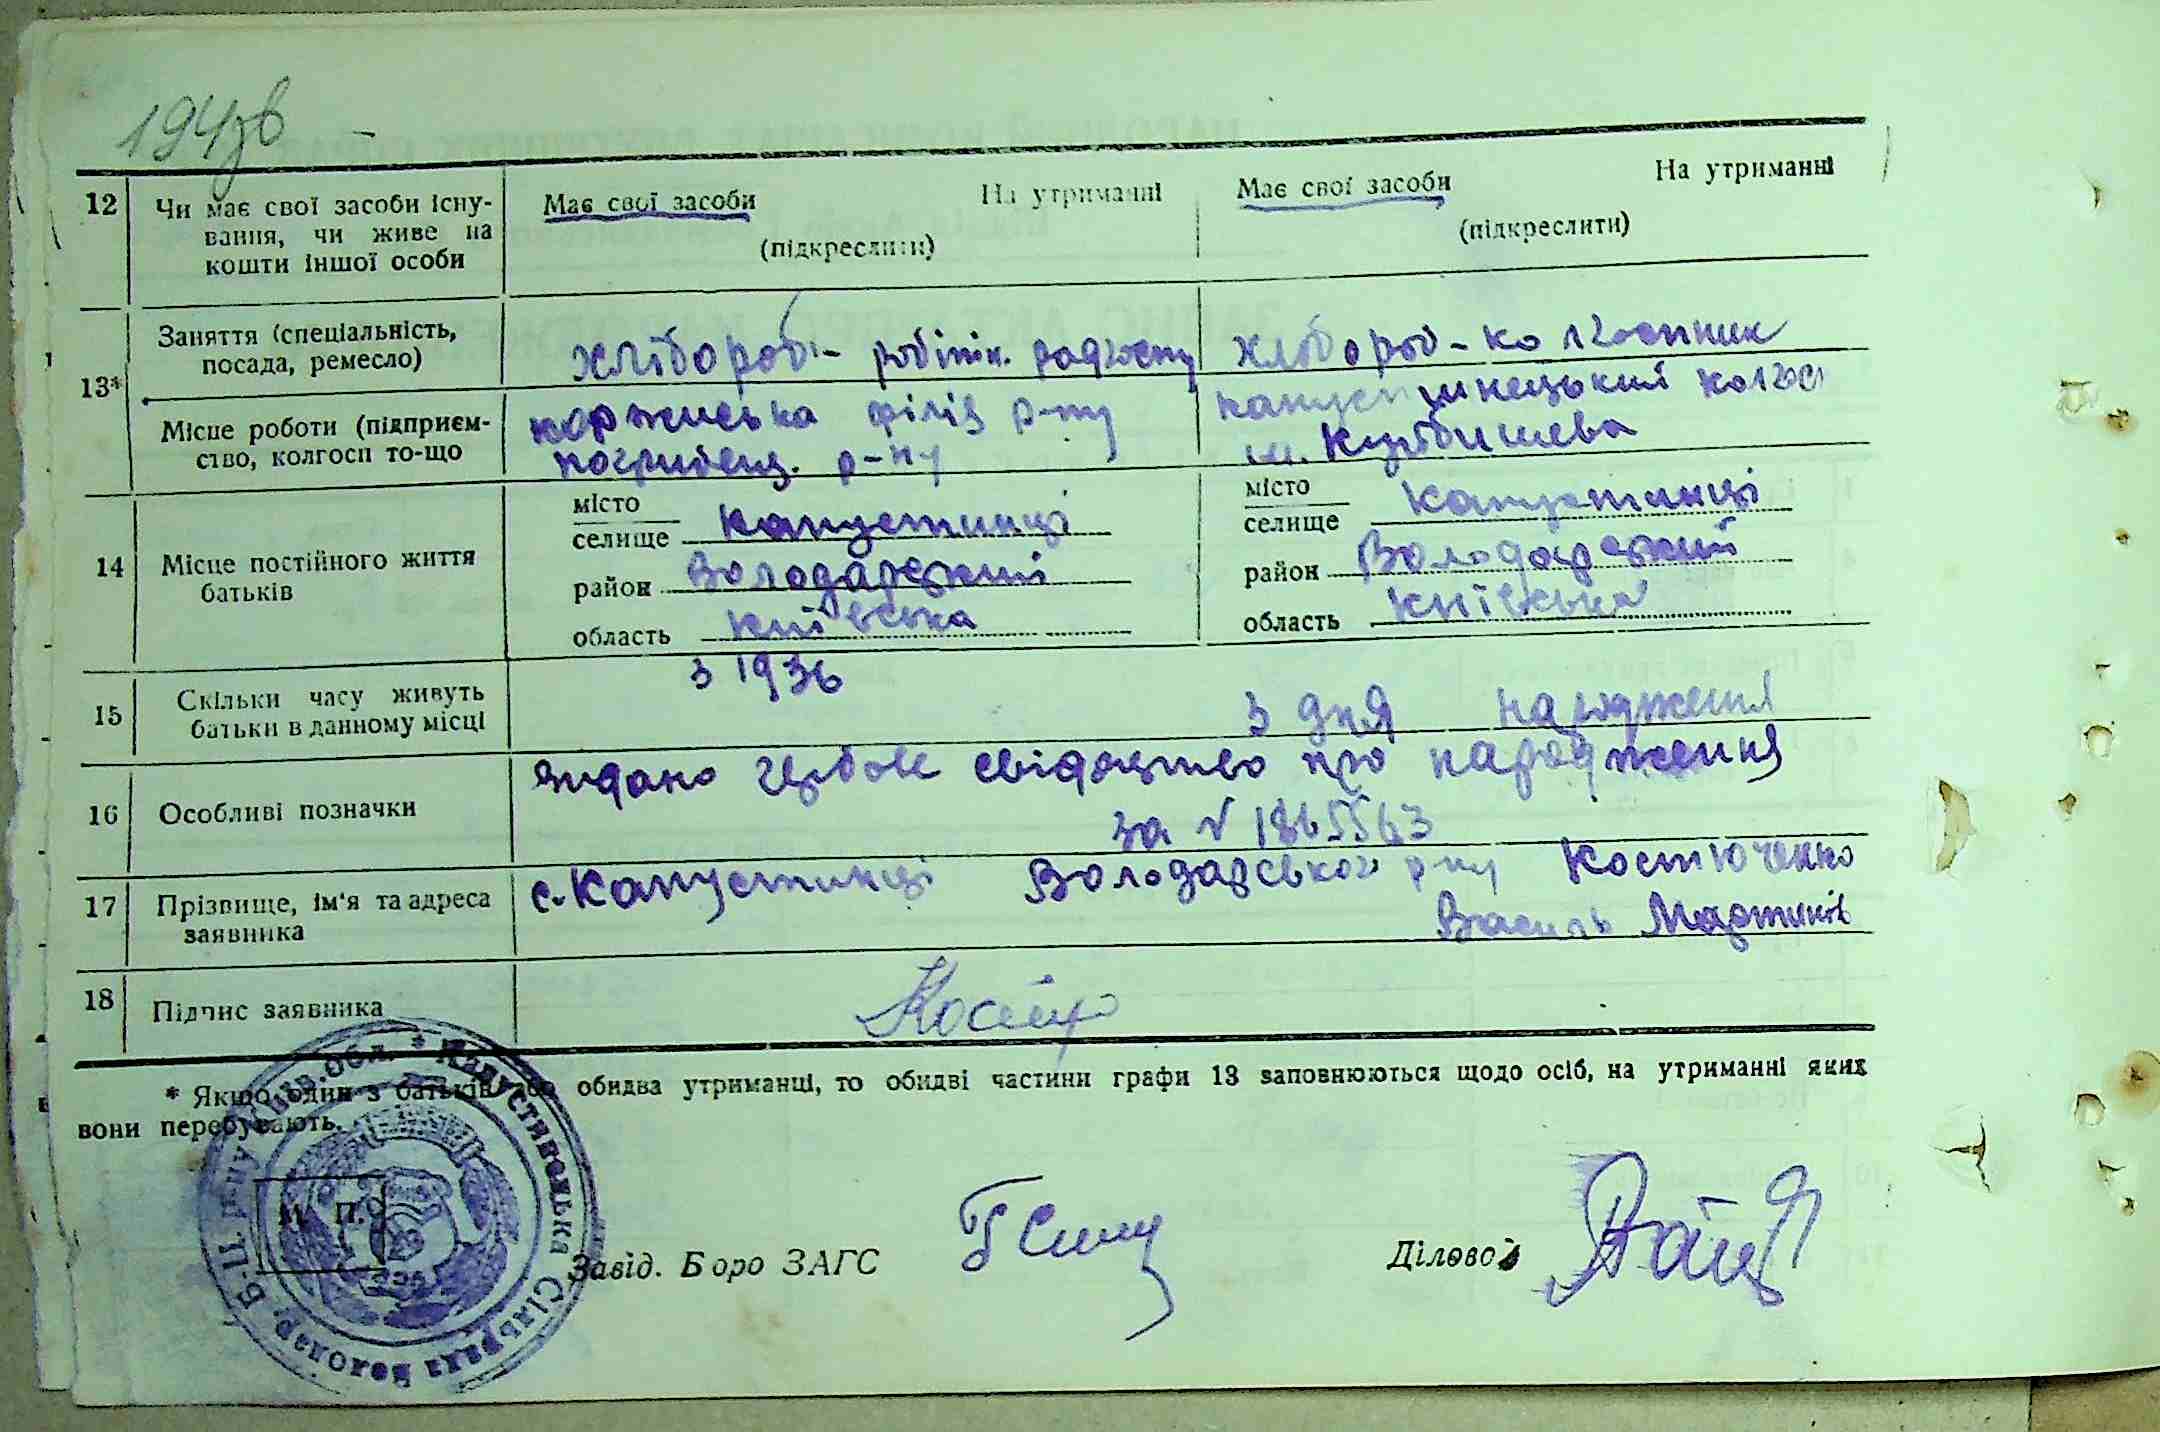 194зв
12 Чи має свої засоби існу-
вання, чи живе на
кошти іншої особи
Має свої засоби На утриманні
(підкреслити)
Має свої засоби На утриманні
(підкреслити)
13* Заняття (спеціальність,
посада, ремесло)
хлібороб - робітн. радгоспу
хлібороб - колгоспник
Місце роботи (підприєм-
ство, колгосп то-що
філія р-ну
погребищ. р-ну
капустинецький колгос
ім. Куйбишева
14 Місце постійного життя
батьків
місто
селище Капустинці
район Володарський
область Київська
місто
селище Капустинці
район Володарський
область Київська
15 Скільки часу живуть
батьки в данному місці
з 1936
з дня народження
16 Особливі позначки
видано гербове свідоцтво про народження
за № 1865563
17 Прізвище, ім'я та адреса
заявника
с. Капустинці Володарського р-ну Костюченко
Василь Мартинів
18 Підпис заявника
* Якщо один з батьків або обидва утриманці, то обидві частини графи 13 заповнюються щодо осіб, на утриманні яких
вони перебувають.
М. П.
Завід. Бюро ЗАГС
Діловод
Капустинська Сільрада Володар. Б-Ц. р-ну Київ. Обл.